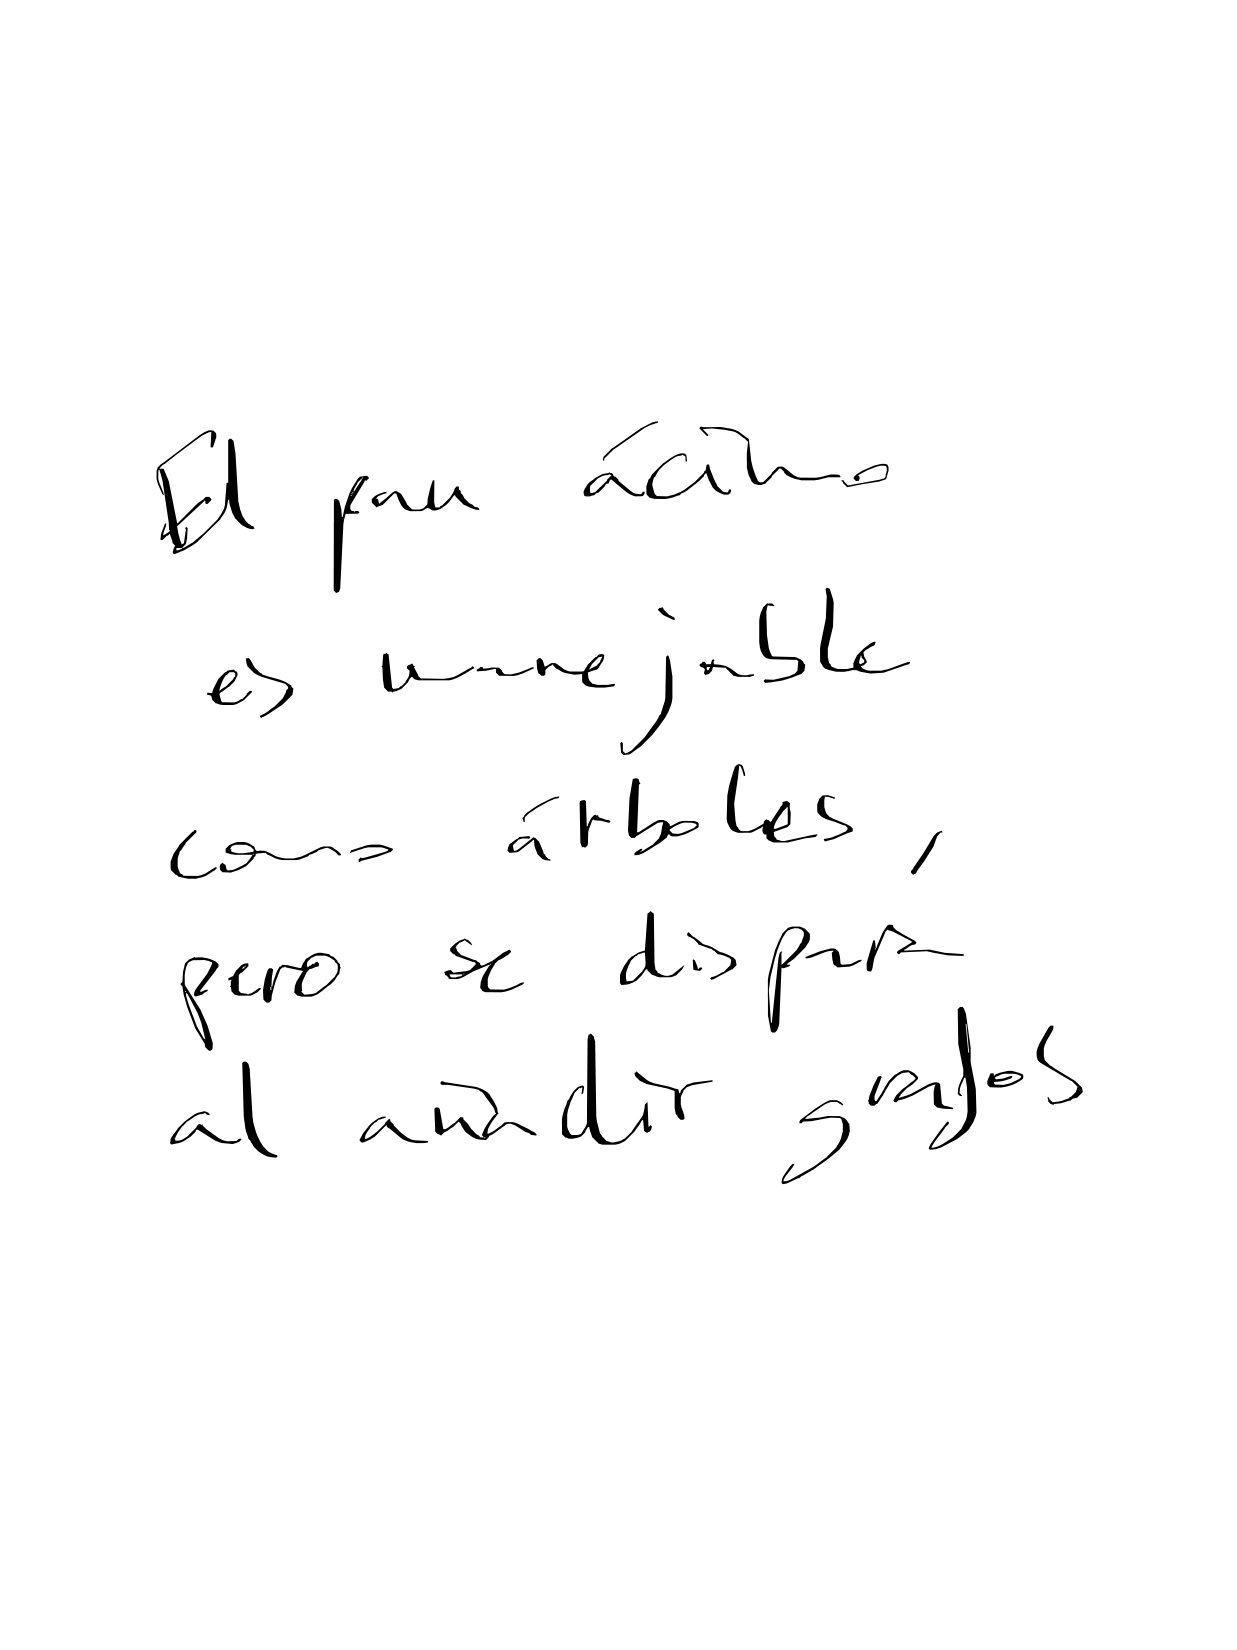 El pan ácimo
es manejable
como árboles,
pero se dispara
al añadir grafos